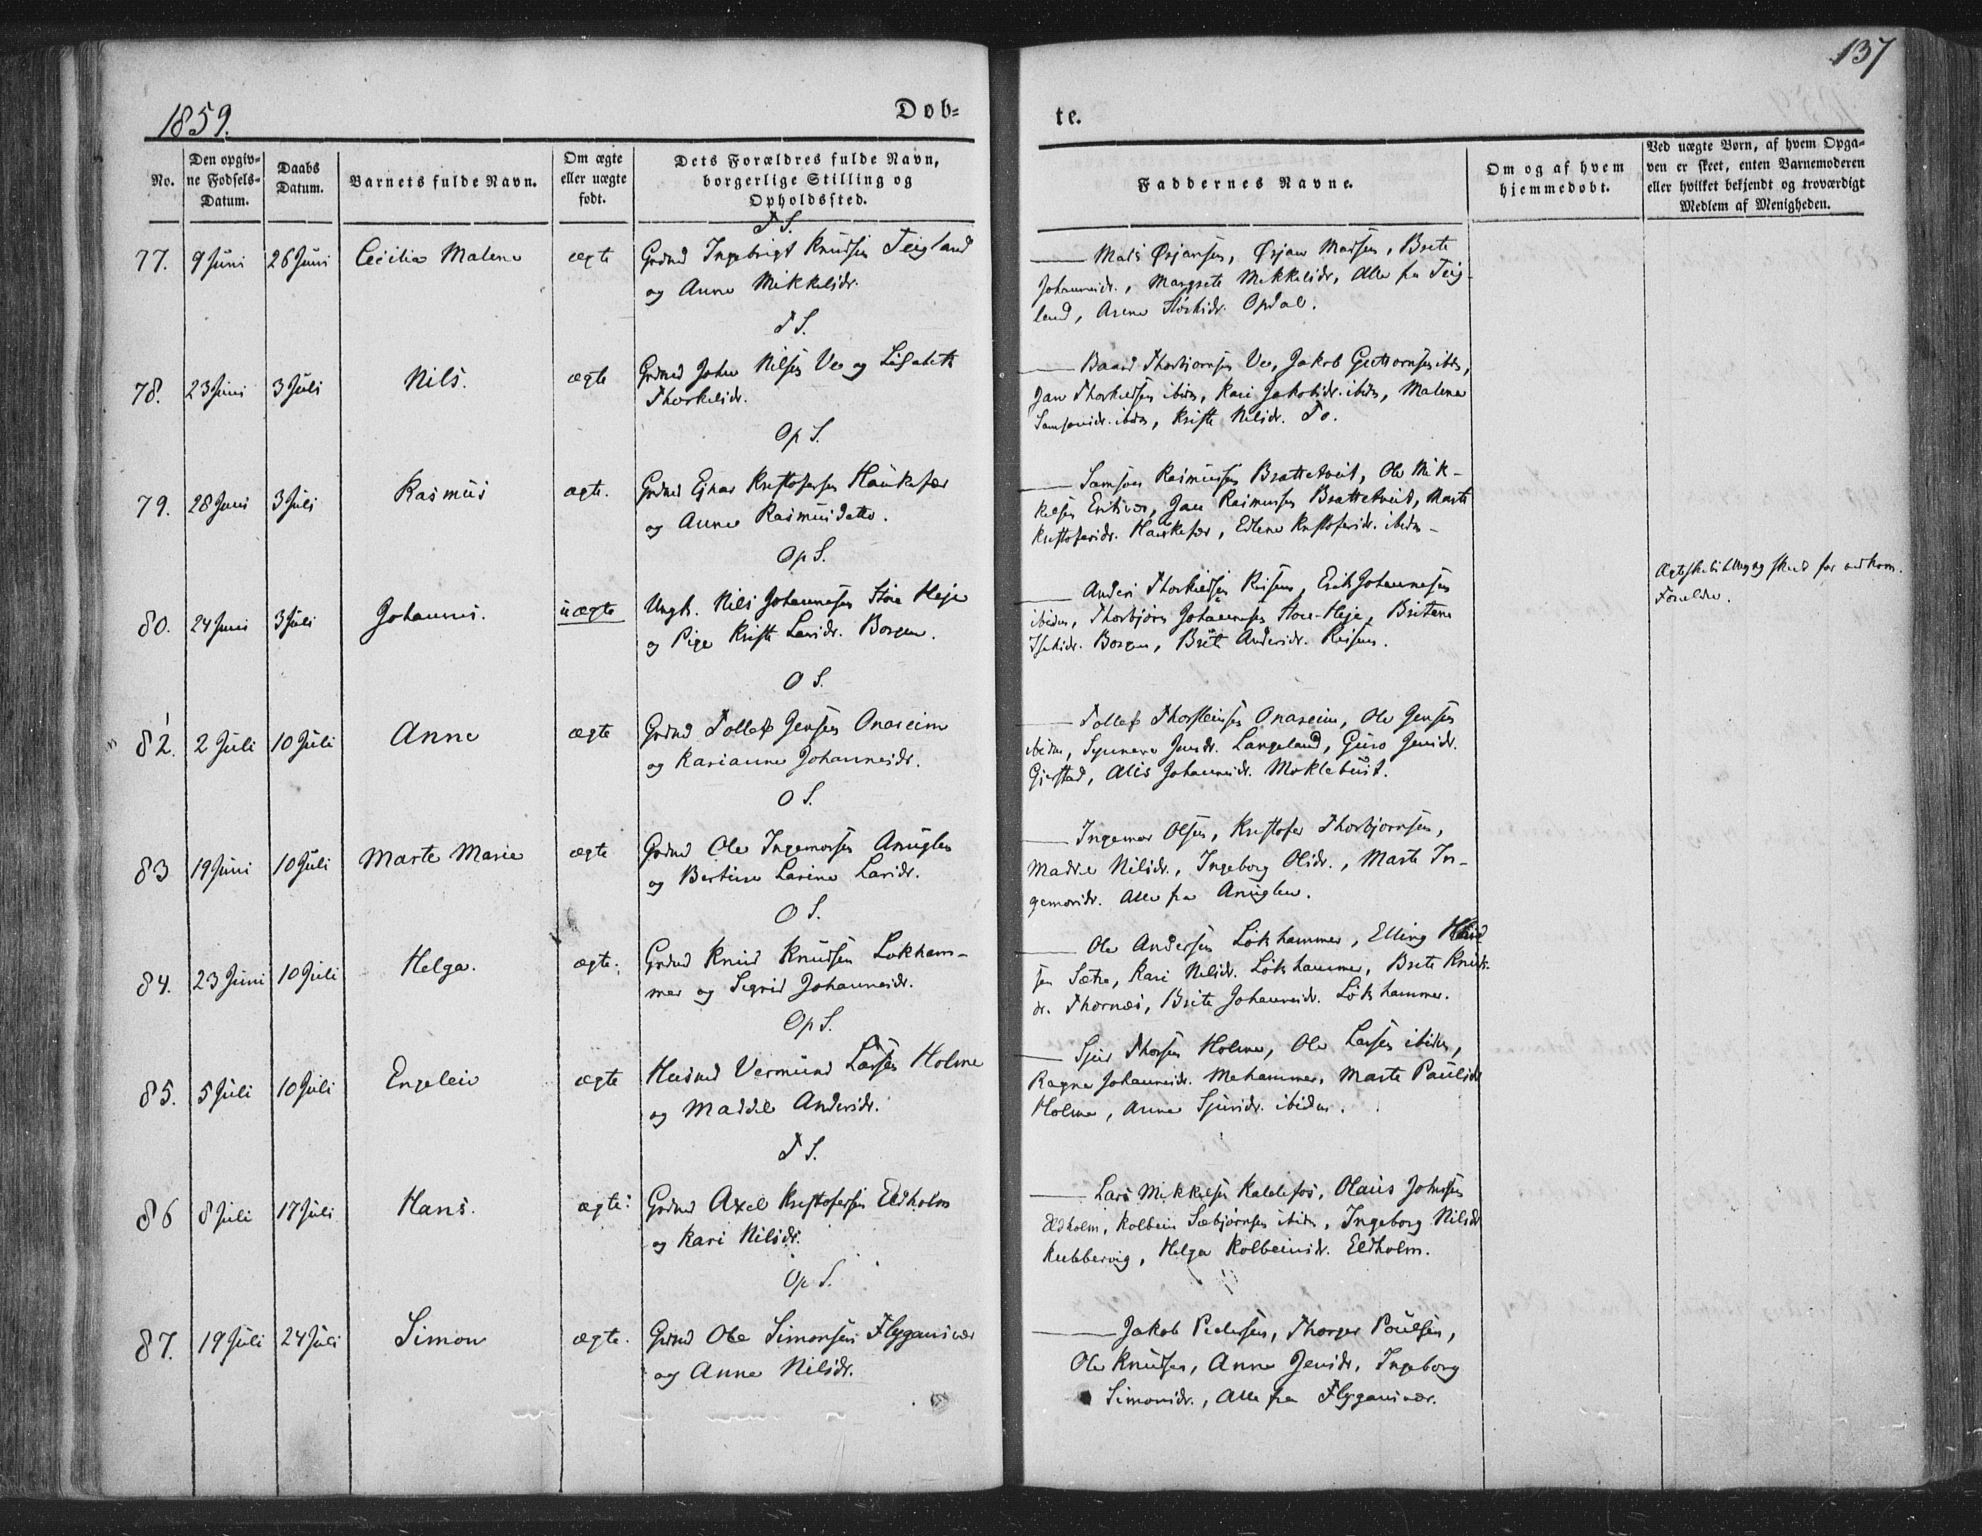 137
1859.
Døb=
te.
No.
Den opgiv=
ne Fødsels=
Datum.
Daabs
Datum.
Barnets fulde Navn.
Om ægte
eller uægte
født.
Dets Forældres fulde Navn,
borgerlige Stilling og
Opholdssted.
Faddernes Navne.
Om og af hvem
hjemmedøbt.
Ved uægte Børn, af hvem Opga=
ven er skeet, enten Barnemoderen
eller hvilket bekjendt og troværdigt
Medlem af Menigheden.
T S.
77. 9 Juni 26 Juni Cecilia Malene ægte Grdmd Ingebrigt Knudsen Teigland
og Anne Mikkelsdr.
Mads Ørjansen, Ørjan Madsen, Brete
Johannesdr., Margrete Mikkelsdr, Alle fra Teig-
land, Opdal.
T S.
78. 23 Juni 3 Juli Nils. ægte Grdmd John Nilsen Ve og Lisabeth
Thorkelsdr.
Baard Thorbjørnsen Ve, Jakob Guttormsen ibdm,
Jan Thorkelsen ibdm, Kari Jakobsdr. ibdm, Malene
Samsonsdr. ibdm, Kristi Nilsdr. To.
Op S.
79. 28 Juni 3 Juli Rasmus ægte. Grdmd Ejnar Kristofersen Haukefær
og Anne Rasmusdatter.
Samson Rasmussen Brattetveit, Ole Mik-
kelsen Jan Rasmussen Brattetveit, Marte
Kristofersdr. Haukefær, Edlene Kristofersdr. ibdm-
Op S.
80. 24 Juni 3 Juli Johannes. uægte Ungk. Nils Johannesen Store Heje
og Pige Kristi Larsdr. Borgen.
Anders Thorkildsen Reisen, Erik Johannesen
ibidm, Thorbjørn Johannesen Store-Heje, Britane
Borgen, Brite Andersdr. Reisen.
af vedkom.
Forældre.
O S.
82. 2 Juli 10 Juli Anne ægte Grdmd Tollef Jensen Onareim
og Karianne Johannesdr.
Tollef Thorsteinsen Onareim, Ole Jensen
ibidm, Synneve Jensdr. Langeland, Guro Jensdr.
Gjerstad, Alis Johannesdr. Møklebust.
O S.
83 19 Juni 10 Juli Marte Marie ægte Grdmd Ole Ingemorsen Anuglen
og Bertine Larine Larsdr.
Ingemar Olsen, Kristofer Thorbjørnsen,
Maddel Nilsdr., Ingeborg Olsdr., Marte In-
gemorsdr. Alle fra Anuglen.
O S.
84. 23 Juni 10 Juli Helga. ægte. Grdmd Knud Knudsen Løkham-
mer og Sigrid Johannesdr.
Ole Andersen Løkhammer, Elling
sen Sætre, Kari Nilsdr. Løkhammer, Brite Knuds-
dr. Thornæs, Brite Johannesdr. Løkhammer.
Op S.
85. 5 Juli 10 Juli Engelei ægte Husmd Vermund Larsen Holme
og Maddel Andersdr.
Sjur Thorsen Holme, Ole Larsen ibidm,
Ragna Johannesdr. Mehammer, Marte Paulsdr
Holme, Anne Sjursdr. ibidm.
T S.
86 8 Juli 17 Juli Hans. ægte. Grdmd Axel Kristofersen Eldholm
og Kari Nilsdr.
Lars Mikkelsen Kaldefos, Olaus Johnsen
Eldholm, Kolbein Sæbjørnsen ibidm, Ingeborg Nilsdr
Kubbervig, Helga Kolbeinsdr. Eldholm.
Op S.
87. 19 Juli 24 Juli Simon ægte. Grdmd Ole Simonsen Flygansvær
og Anne Nilsdr.
Jakob Pedersen, Thorger Poulsen,
Ole Knudsen, Anne Jensdr, Ingeborg
Simonsdr., Alle fra Flygansvær.